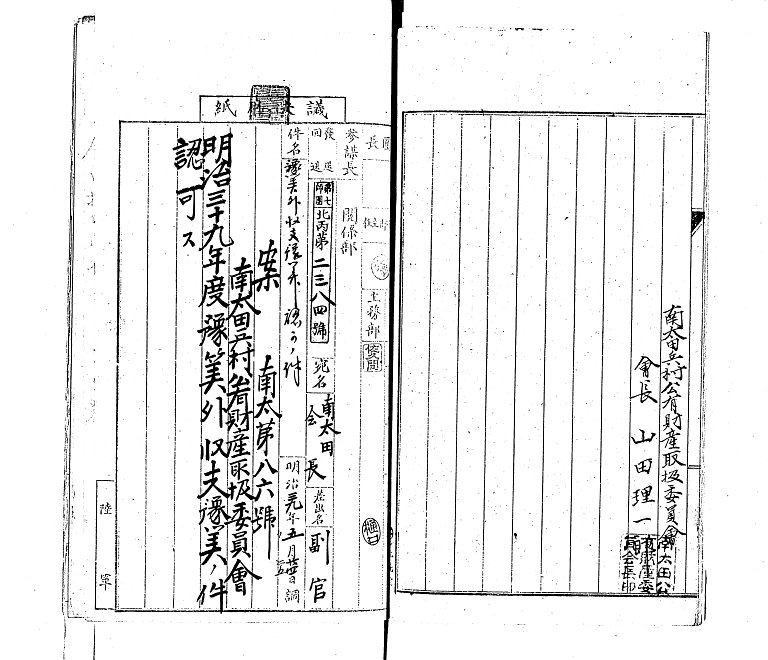 南太田兵村公有財産取扱委員會
會長 山田理一
南太田公
有財産委
員会長印
議 紙
長
參謀長 關係部 主務部
發送
回送
第七師團 北丙第二三八四號 宛名 南太田会長 差出名 副官
件名 豫算外収支豫算認可ノ件 明治卅九年五月 日 調
案 南太第八六號
南太田兵村公有財産取扱委員會
明治三十九年度豫算外収支豫算ノ件
認可ス
樋口
陸軍